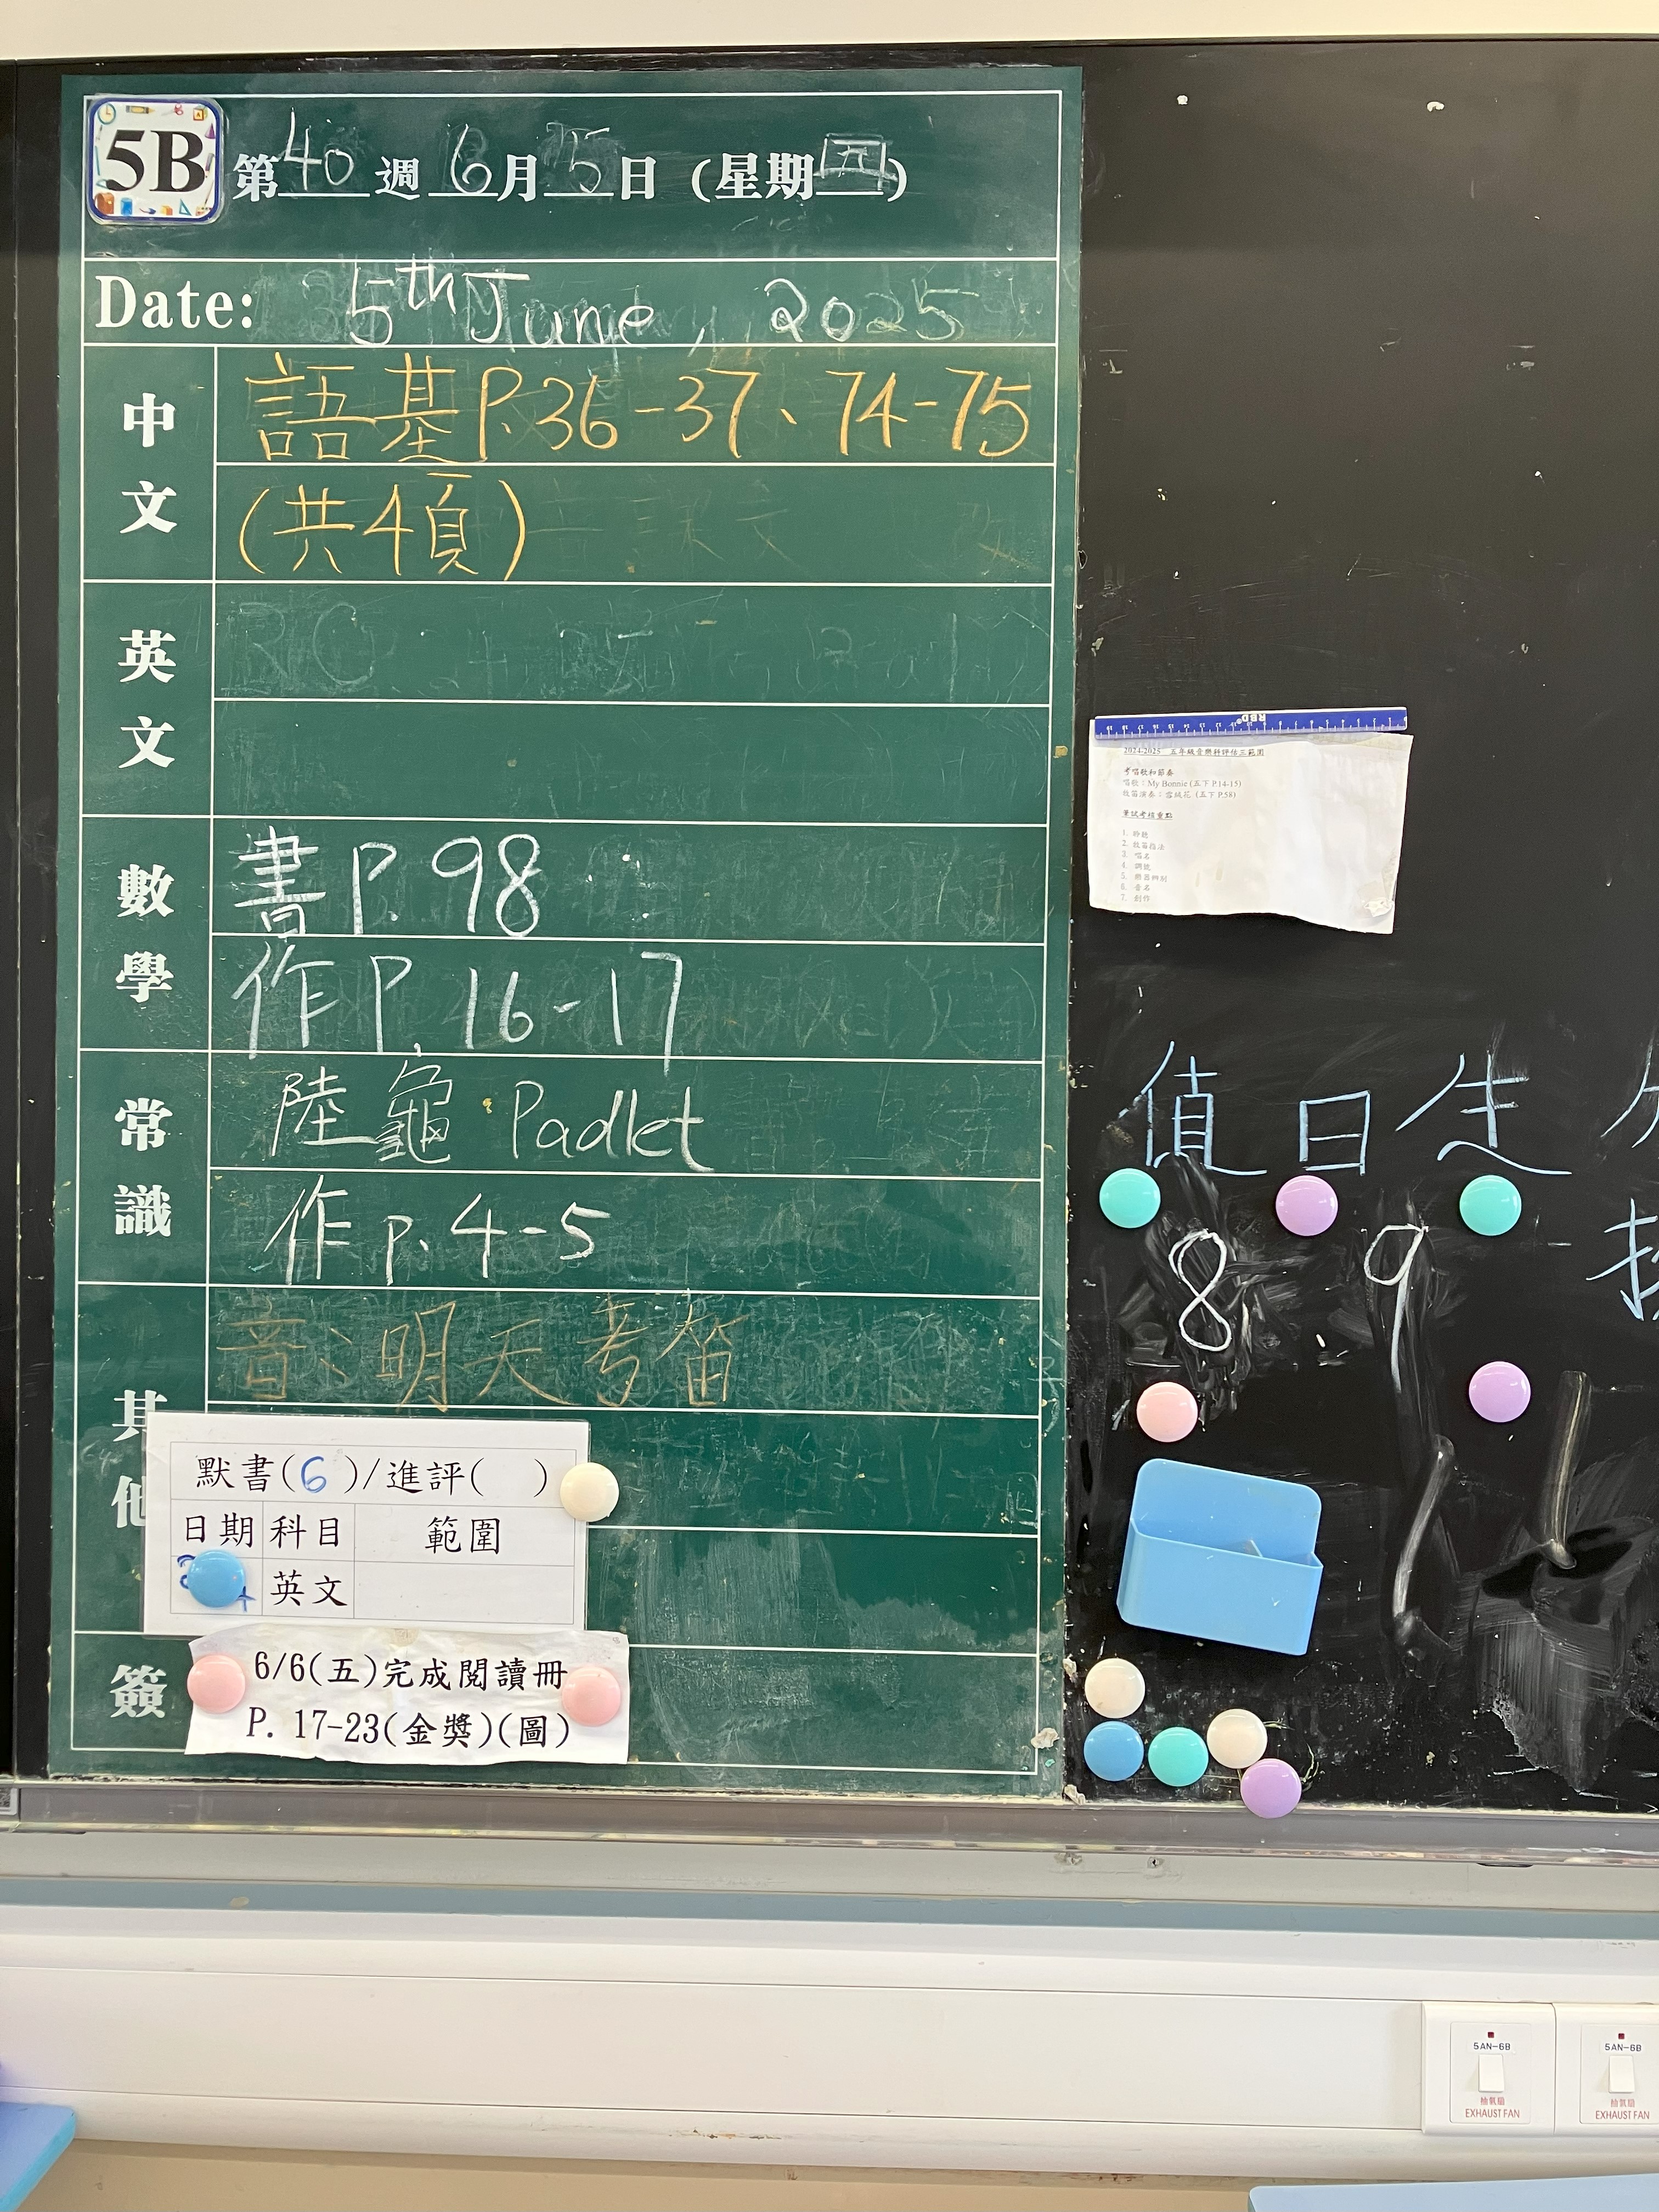 5B 第40週6月5日(星期四)
Date: 5th June, 2025
中文
語基P.36-37、74-75
(共4頁)
英文
數學
書P.98
作P.16-17
常識
陸龜 Padlet
作p.4-5
其他
音:明天考笛
默書(6)/進評( )
日期 科目 範圍
英文
簽
6/6(五)完成閱讀冊
P. 17-23(金獎)(圖)
RBD
2024-2025 五年級音樂科評估三範圍
考唱歌和節奏
唱歌:My Bonnie (五下 P.14-15)
牧笛演奏:雪絨花 (五下 P.58)
筆試考核重點
1. 聆聽
2. 牧笛指法
3. 唱名
4. 調號
5. 樂器辨別
6. 音名
7. 創作
值日生
8 9
5AN-6B
抽氣扇
EXHAUST FAN
5AN-6B
抽氣扇
EXHAUST FAN